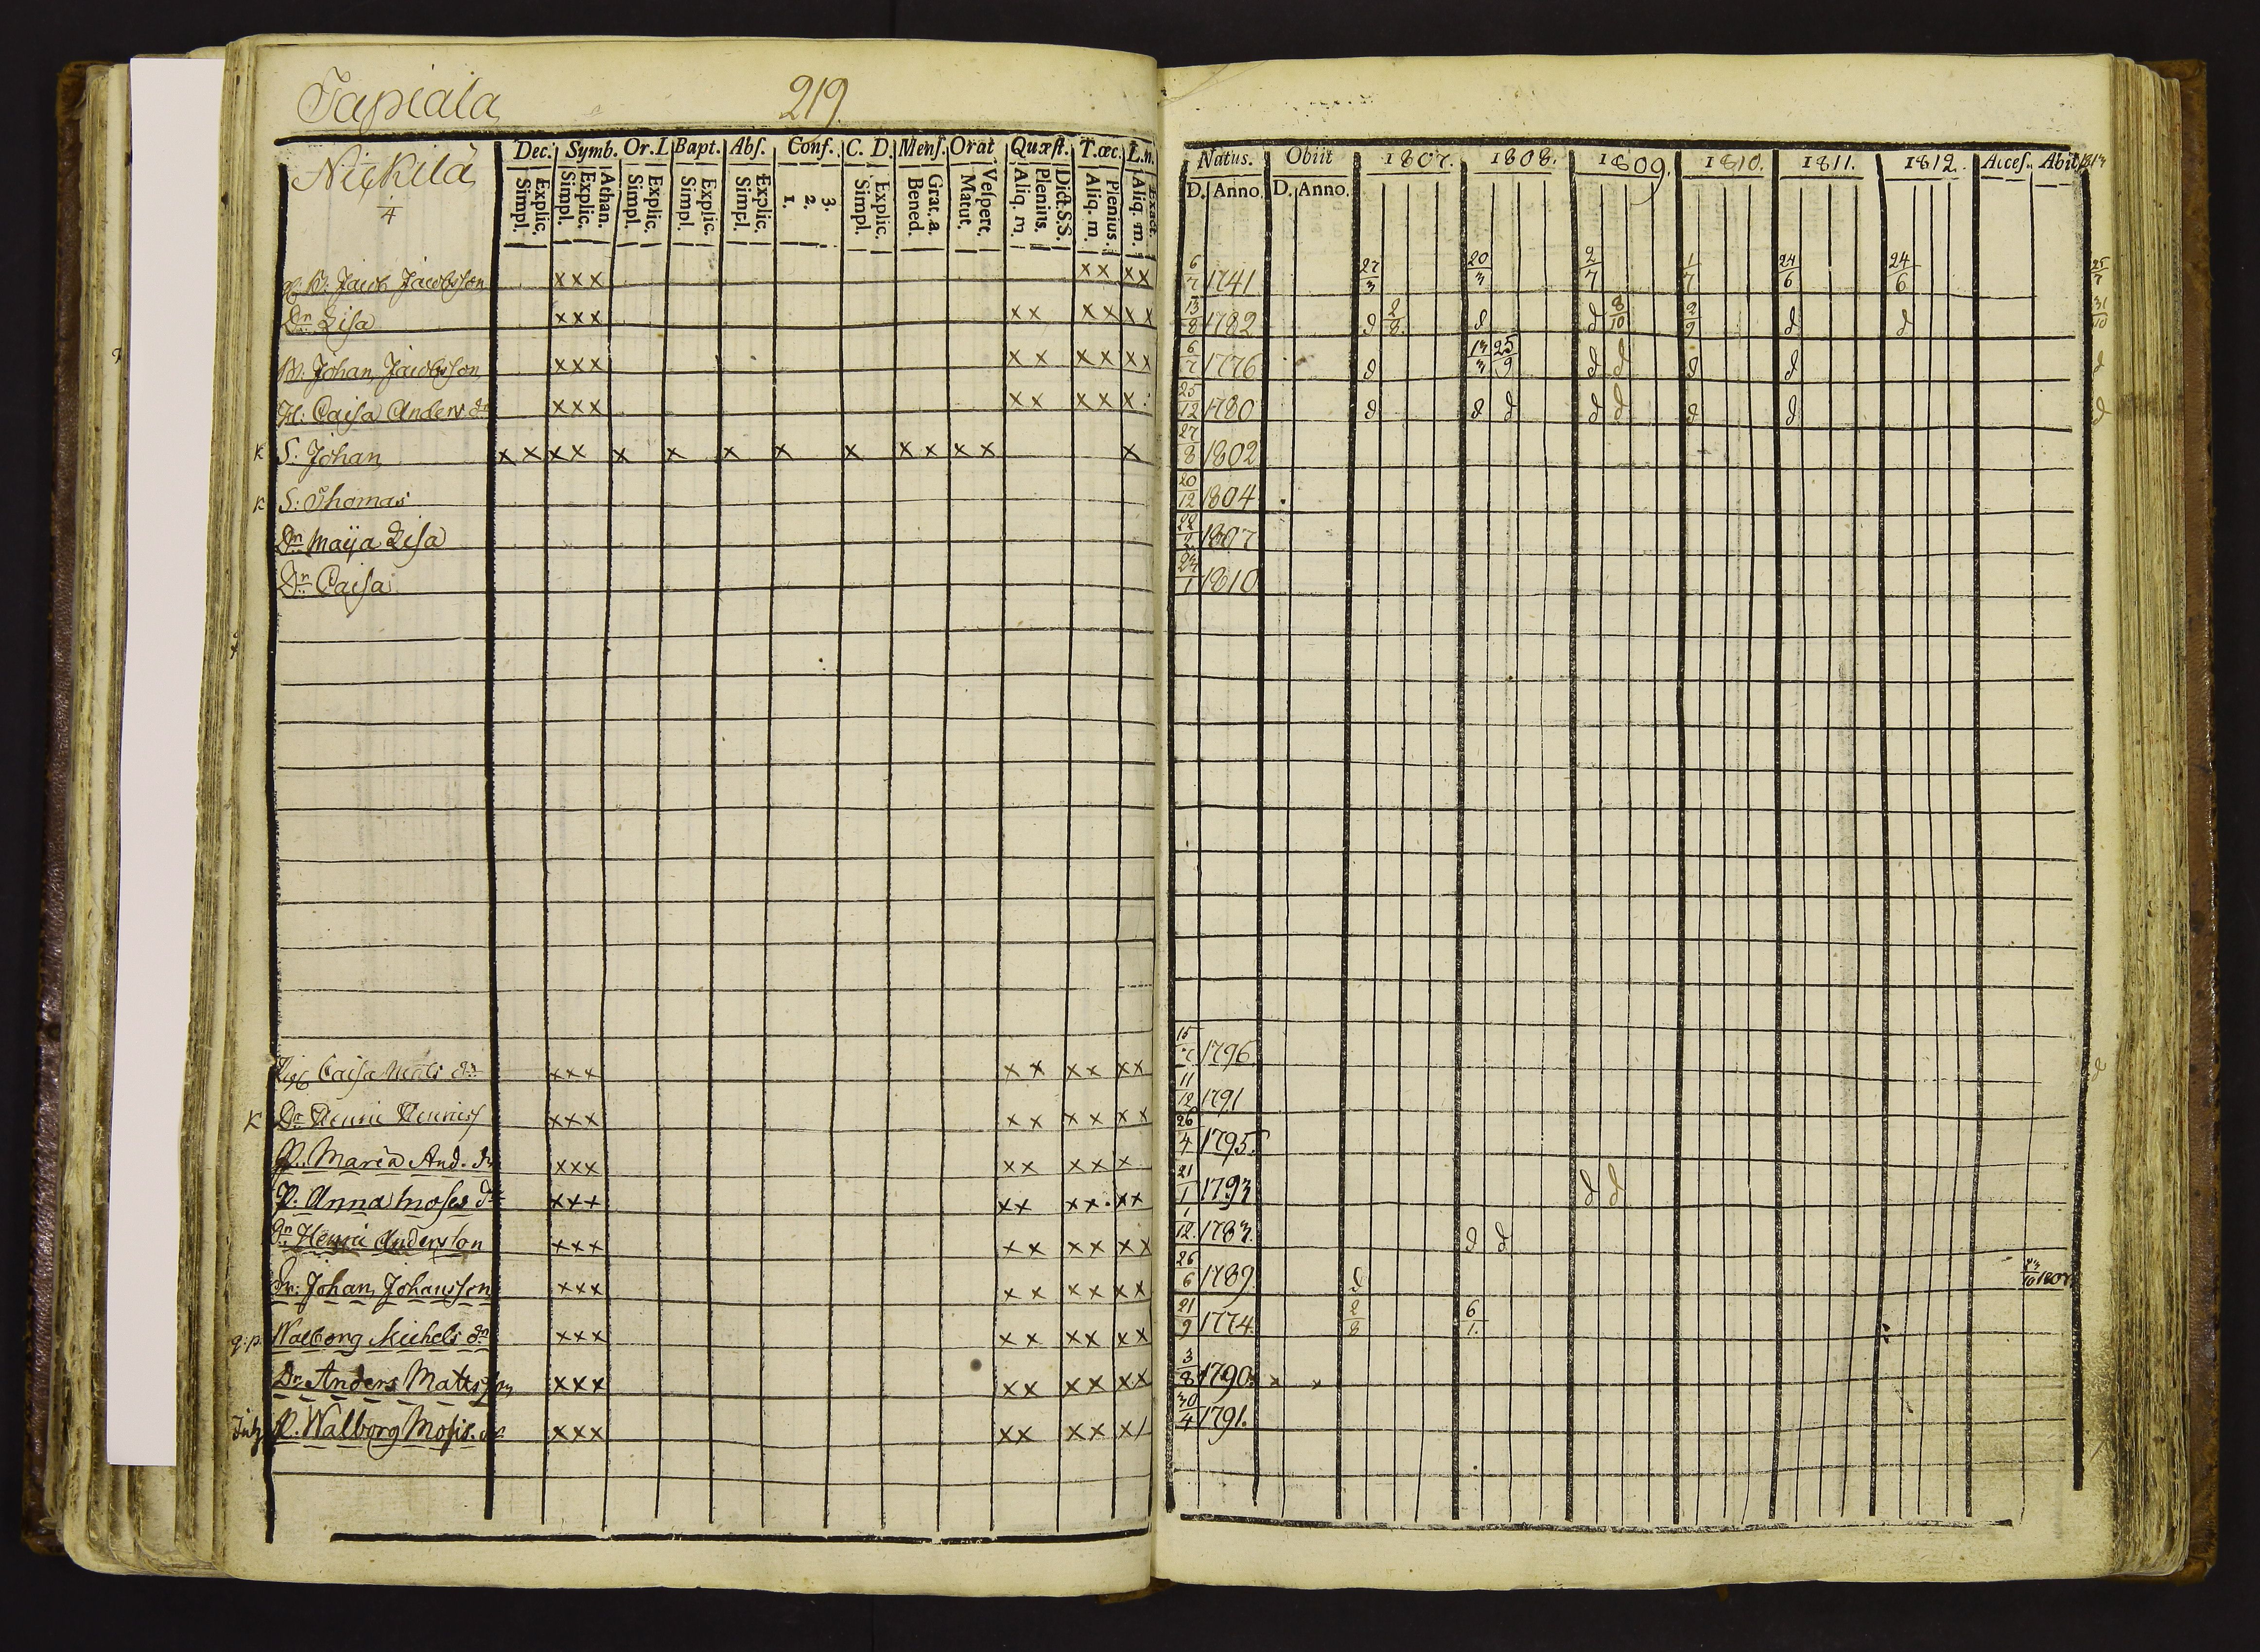 Tapiala 219.
Nickilä
1/4
Dec. Symb. Or.I. Bapt. Abſ. Conf. C. D. Menſ. Orat Quæſt. T.œc. L.n.
Simpl. Explic. Simpl. Explic. Athan. Simpl. Explic. Simpl. Explic. Simpl. Explic. 1. 2. 3. Simpl. Explic. Bened. Grat. a. Matut. Veſpert. Aliq. m. Plenius. Dict.S.S. Aliq. m. Plenius. Aliq. m. Exact.
Natus. Obiit 1807. 1808. 1809. 1810. 1811. 1812. Acceſ. Abiit 1813
D. Anno. D. Anno.
B: Jacob Jacobsson xxx xx xx 6/7 1741 27/3 20/3 2/7 1/7 24/6 24/6 25/7
Dn Lisa xxx xx xx xx 13/8 1782 d 2/8. d d 8/10 2/9 d d 31/10
B: Johan Jacobsson xxx xx xx xx 6/7 1776 d 13/3 25/9 d d d d d
H: Caisa Anders dr xxx xx xx x 25/12 1780 d d d d d d d d
K S: Johan x x x x x x x x x x x x x x 27/8 1802
K S: Thomas 20/12 1804
Dn Maija Lisa 22/2 1807
Dn Caisa 23/1 1810
Caisa Mats dr xxx xx xx xx 15/7 1796 d
K Dr Henric Henrics xxx xx xx xx 11/12 1791
P. Maria And. dr xxx xx xx x 26/4 1795.
P: Anna Moses dr xxx xx xx xx 21/1 1793 d d
Dr. Henric Andersson xxx xx xx xx 1/12 1783. d d
Dr: Johan Johansson xxx xx xx xx 26/6 1789 d
q:p. Walborg Michels dr xxx xx xx xx 21/9 1774 2/8 6/1.
Dr. Anders Mattsson xxx xx xx xx 3/8 1790.
P. Walborg Mosis. dr xxx xx xx x/ 30/4 1791.